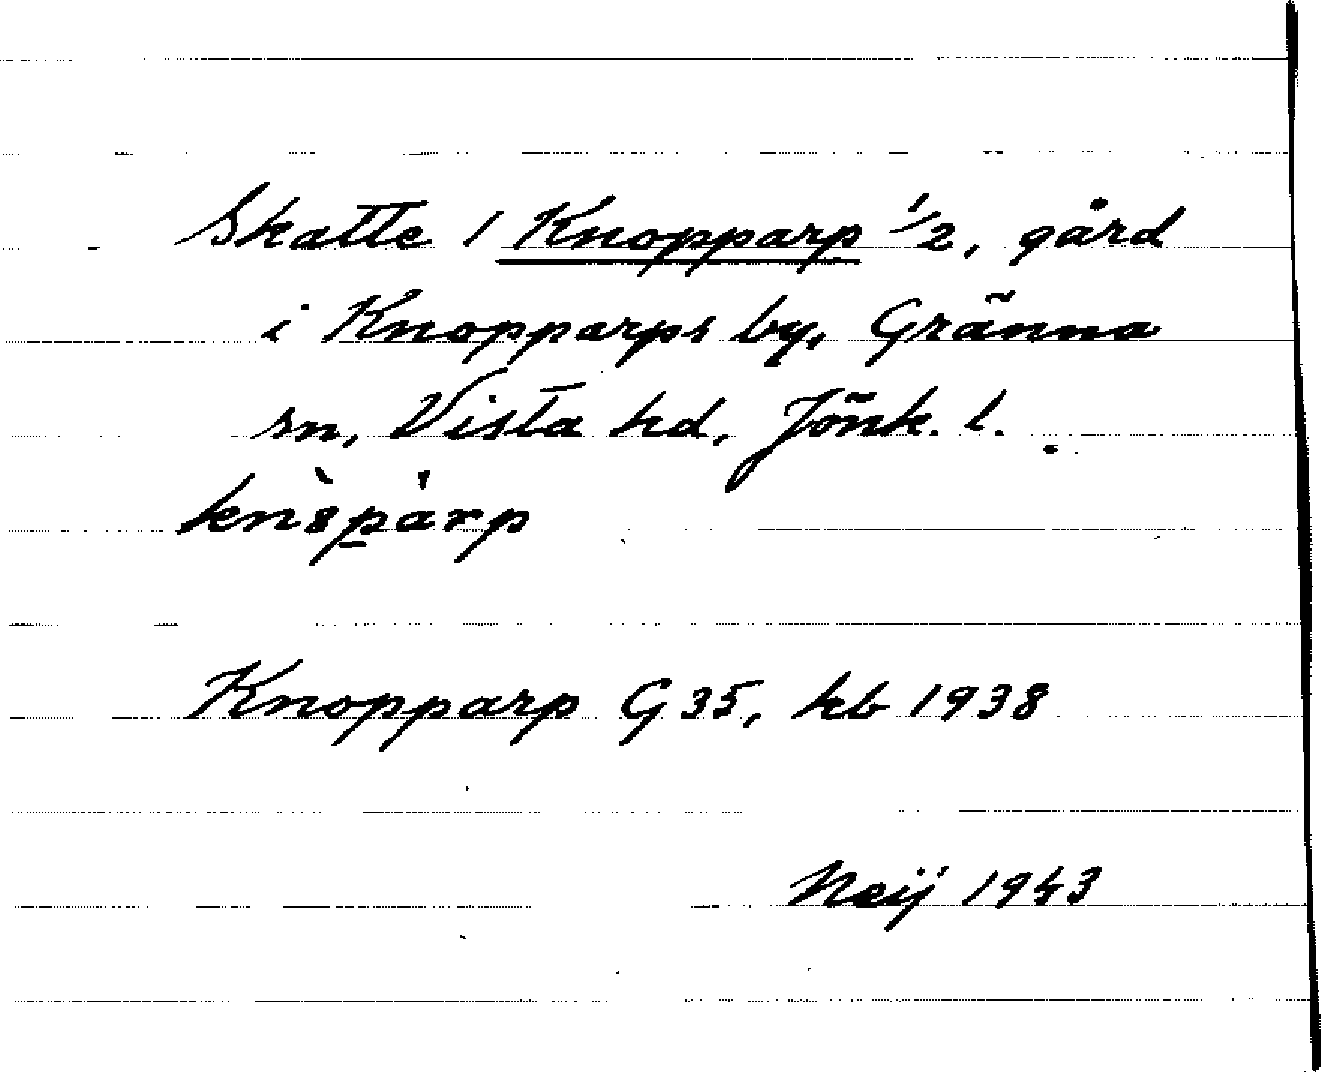 Skatte 1 Knopparp 1/2, gård
i Knopparps by, Gränna
sn, Vista hd, Jönk. l.
Knopparp G 35, kb 1938
Neij 1943